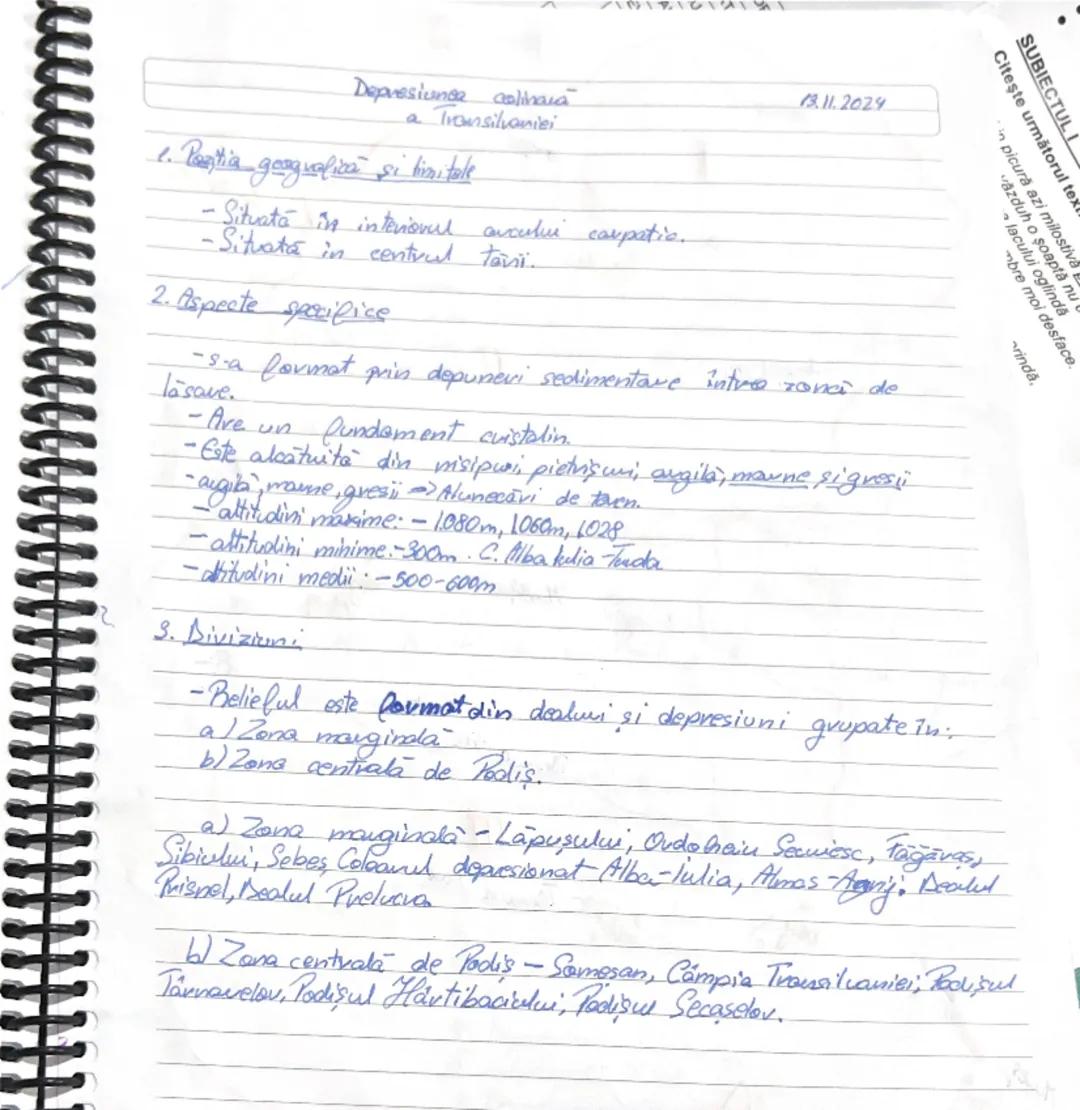 Depresiunea colinară 13.11.2024
a Transilvaniei
1. Poziția geografică și limitele
- Situată în interiorul arcului carpatic.
- Situată în centrul țării.
2. Aspecte specifice
- s-a format prin depuneri sedimentare într-o zonă de
lăsare.
- Are un fundament cristalin.
- Este alcătuită din nisipuri, pietrișuri, argilă, marne și gresii
- argilă, marne, gresii => Alunecări de teren.
- altitudini maxime: - 1080m, 1060m, 1028
- altitudini minime: - 300m. C. Alba Iulia - Turda
- altitudini medii: - 500-600m
3. Diviziuni
- Relieful este format din dealuri și depresiuni grupate în:
a) Zona marginală
b) Zona centrală de Podiș.
a) Zona marginală - Lăpușului, Odorheiu Secuiesc, Făgăraș,
Sibiului, Sebeș, Coloarul depresionat Alba-Iulia, Almaș-Agrij. Dealul
Prisnel, Dealul Preluca
b) Zona centrală de Podiș - Someșan, Câmpia Transilvaniei; Podișul
Târnavelor, Podișul Hârtibaciului; Podișul Secașelor.
SUBIECTUL I
Citește următorul text
în picură azi milostivă
văzduh o șoaptă nu
lacului oglindă
moi desface.